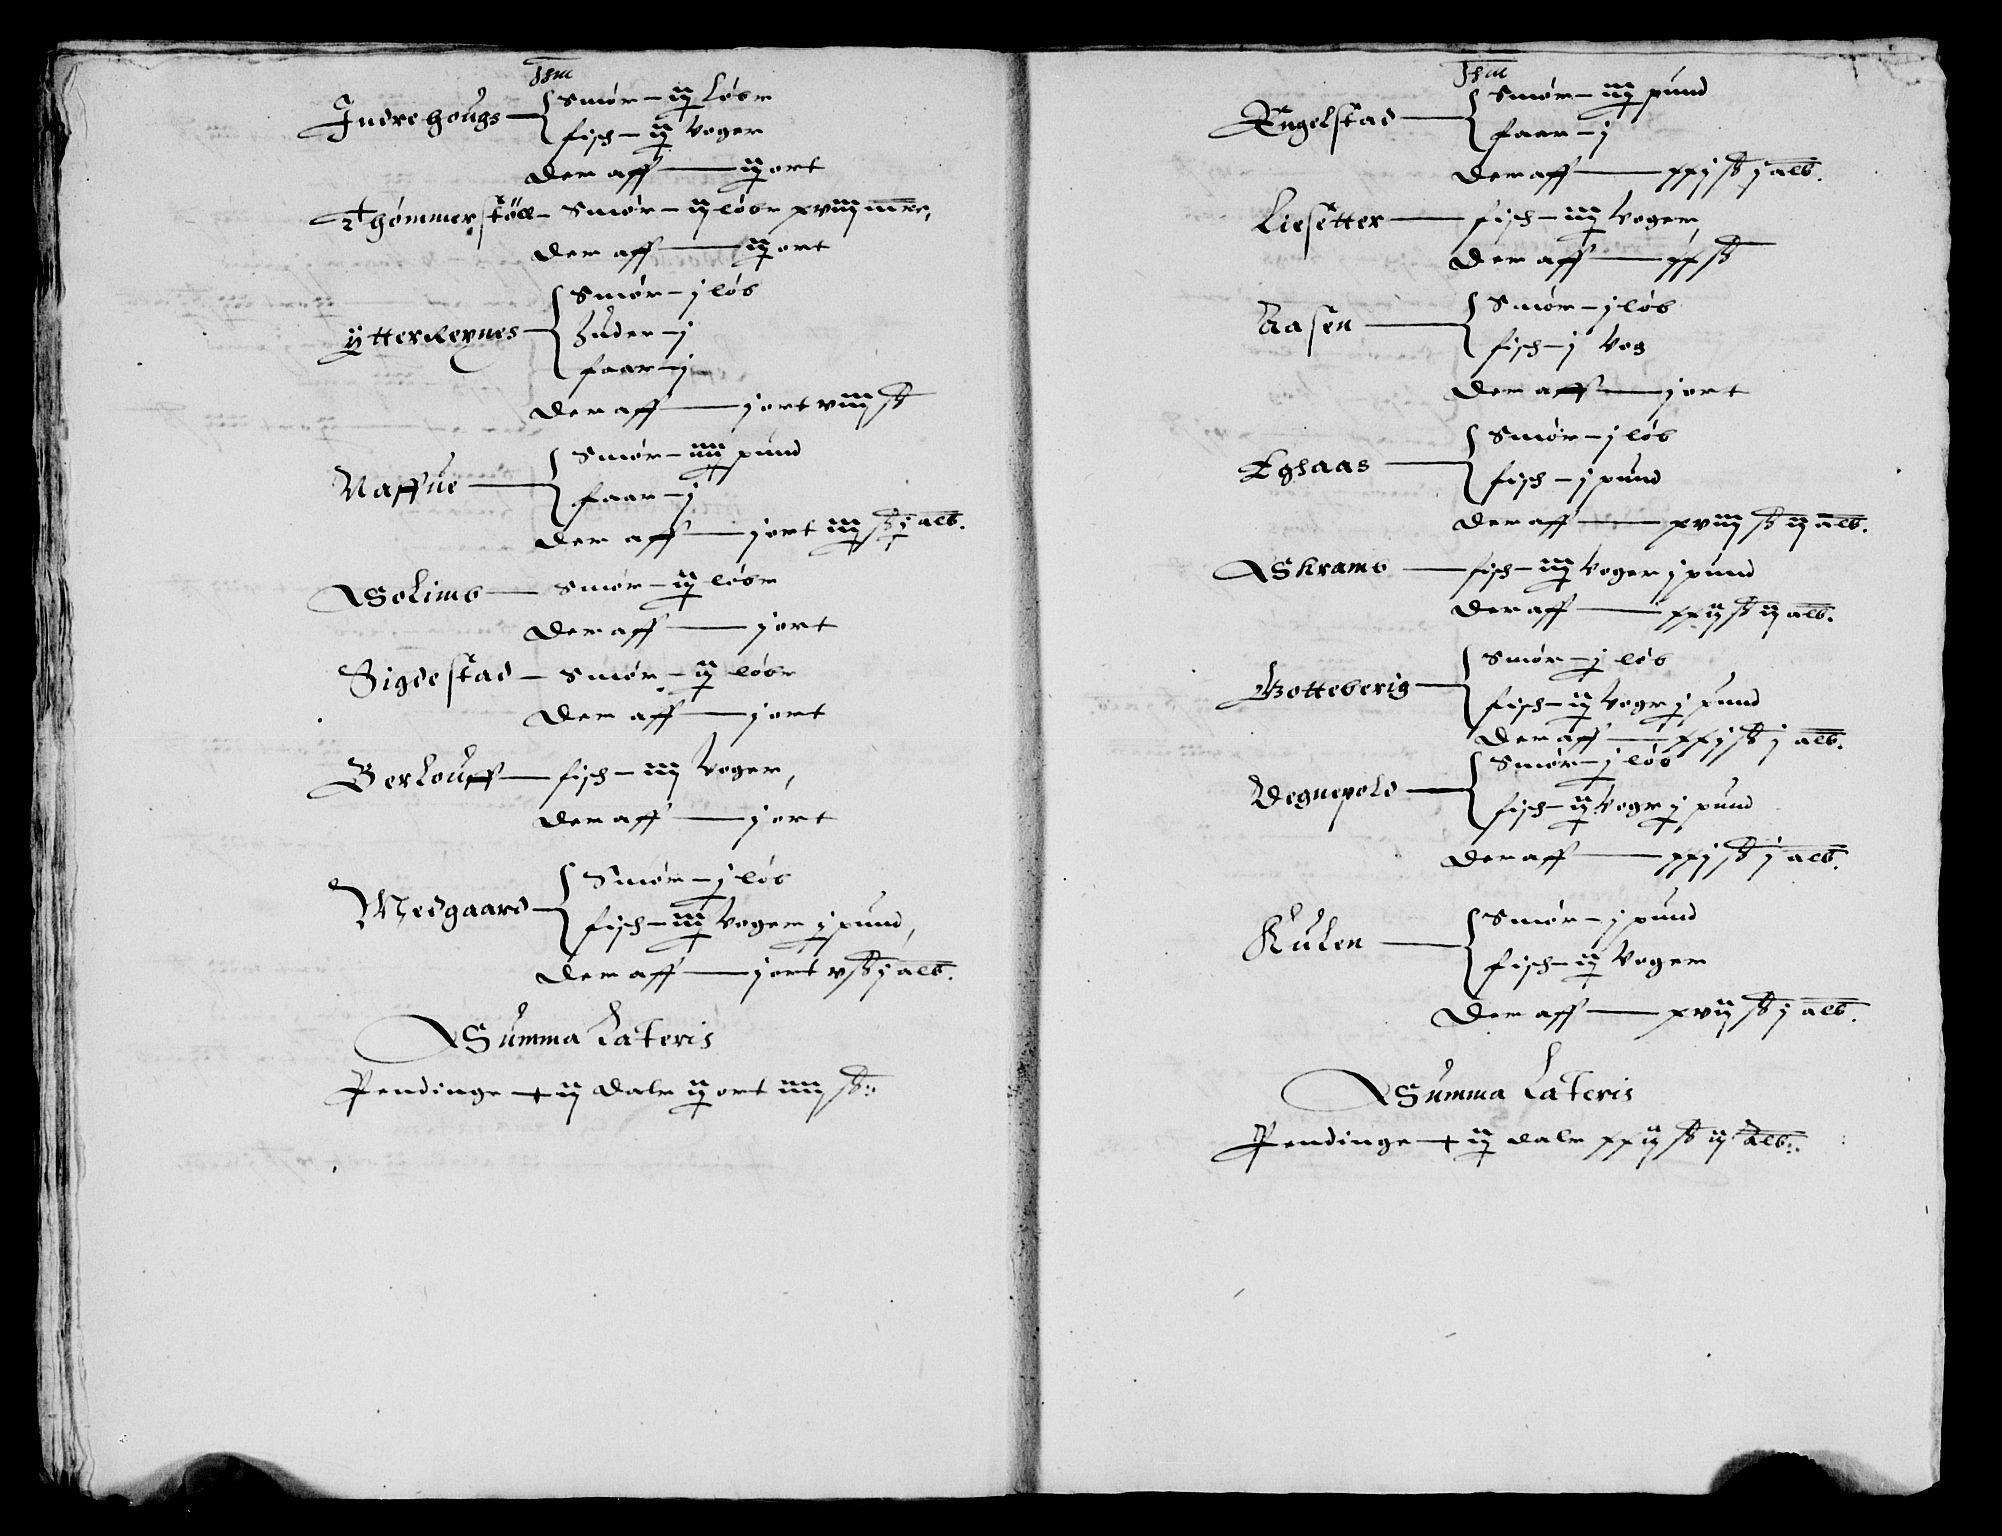 Ihm
Indrehougs { Smør – iij løbr
fisch – iij Voger
der aff — iij ort
Thommerstöll – Smør – ij løbr xviij mrc,
der aff — iij ort
Ytterreynes { Smør – j løb
huder – j
faar – j
der aff — j ort viij ß
Naffue { Smør – iiij pund
faar – j
der aff — j ort iiij ß j alb.
Solimb — Smør – iij løbr
der aff — j ort
Sigdestad – Smør – iij løbr
der aff — j ort
Berlouff — fisch – iiij Voger,
der aff — j ort
Medgaard { Smør – j løb
fisch – iiij Voger j pund,
der aff — j ort v ß j alb.
Summa Lateris
Pendinge + ij dalr iij ort iiiij ß
Ihm
Engelstad { Smør – iiij pund
faar – j
der aff — xxj ß j alb.
Liesetter — fisch – iiij Voger,
der aff — xx ß
Aasen { Smør – j løb
fisch – j Vog
der aff — j ort
Eghaas { Smør – j løb
fisch – j pund
der aff — xviij ß ij alb.
Skramb — fisch – iiij Voger j pund
der aff — xxij ß ij alb.
Botteberig { Smør – j løb
fisch – iij Vogr j pund
der aff — xxj ß j alb.
Degnepold { Smør – j løb
fisch – iij Vogr j pund
der aff — xxj ß j alb.
Kulen { Smør – j pund
fisch – iij Voger
der aff — xvij ß j alb.
Summa Lateris
Pendinge + iij dalr xxij ß ij alb.